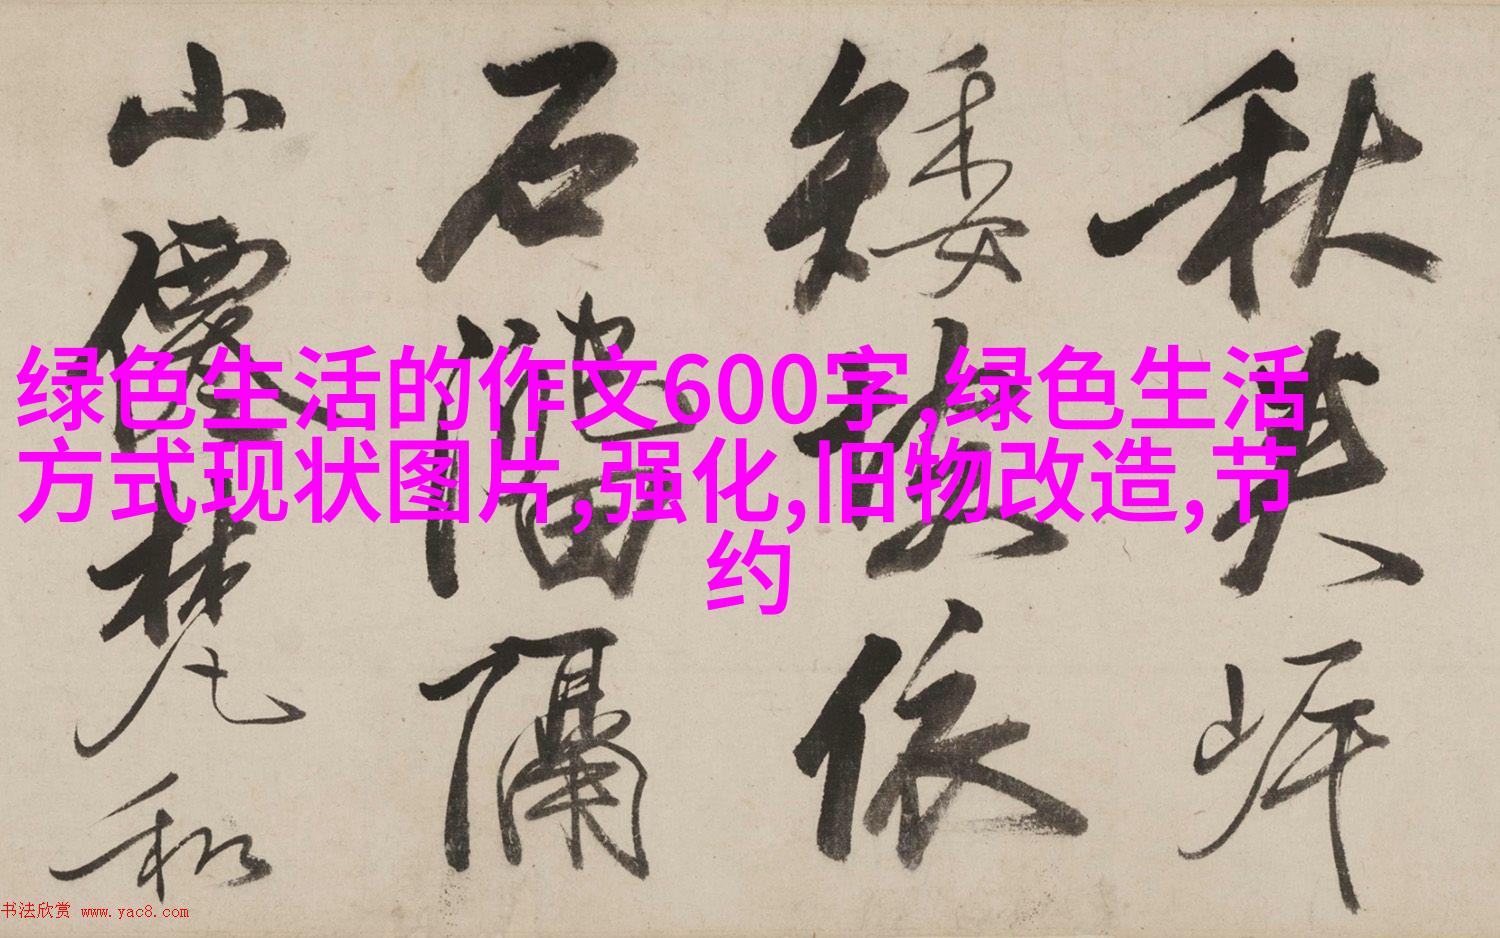 秋
矮
依
石
隔
山
僊
梵
和
绿色生活的作文600字,绿色生活
方式现状图片,强化,旧物改造,节
约
书法欣赏 www.yac8.com